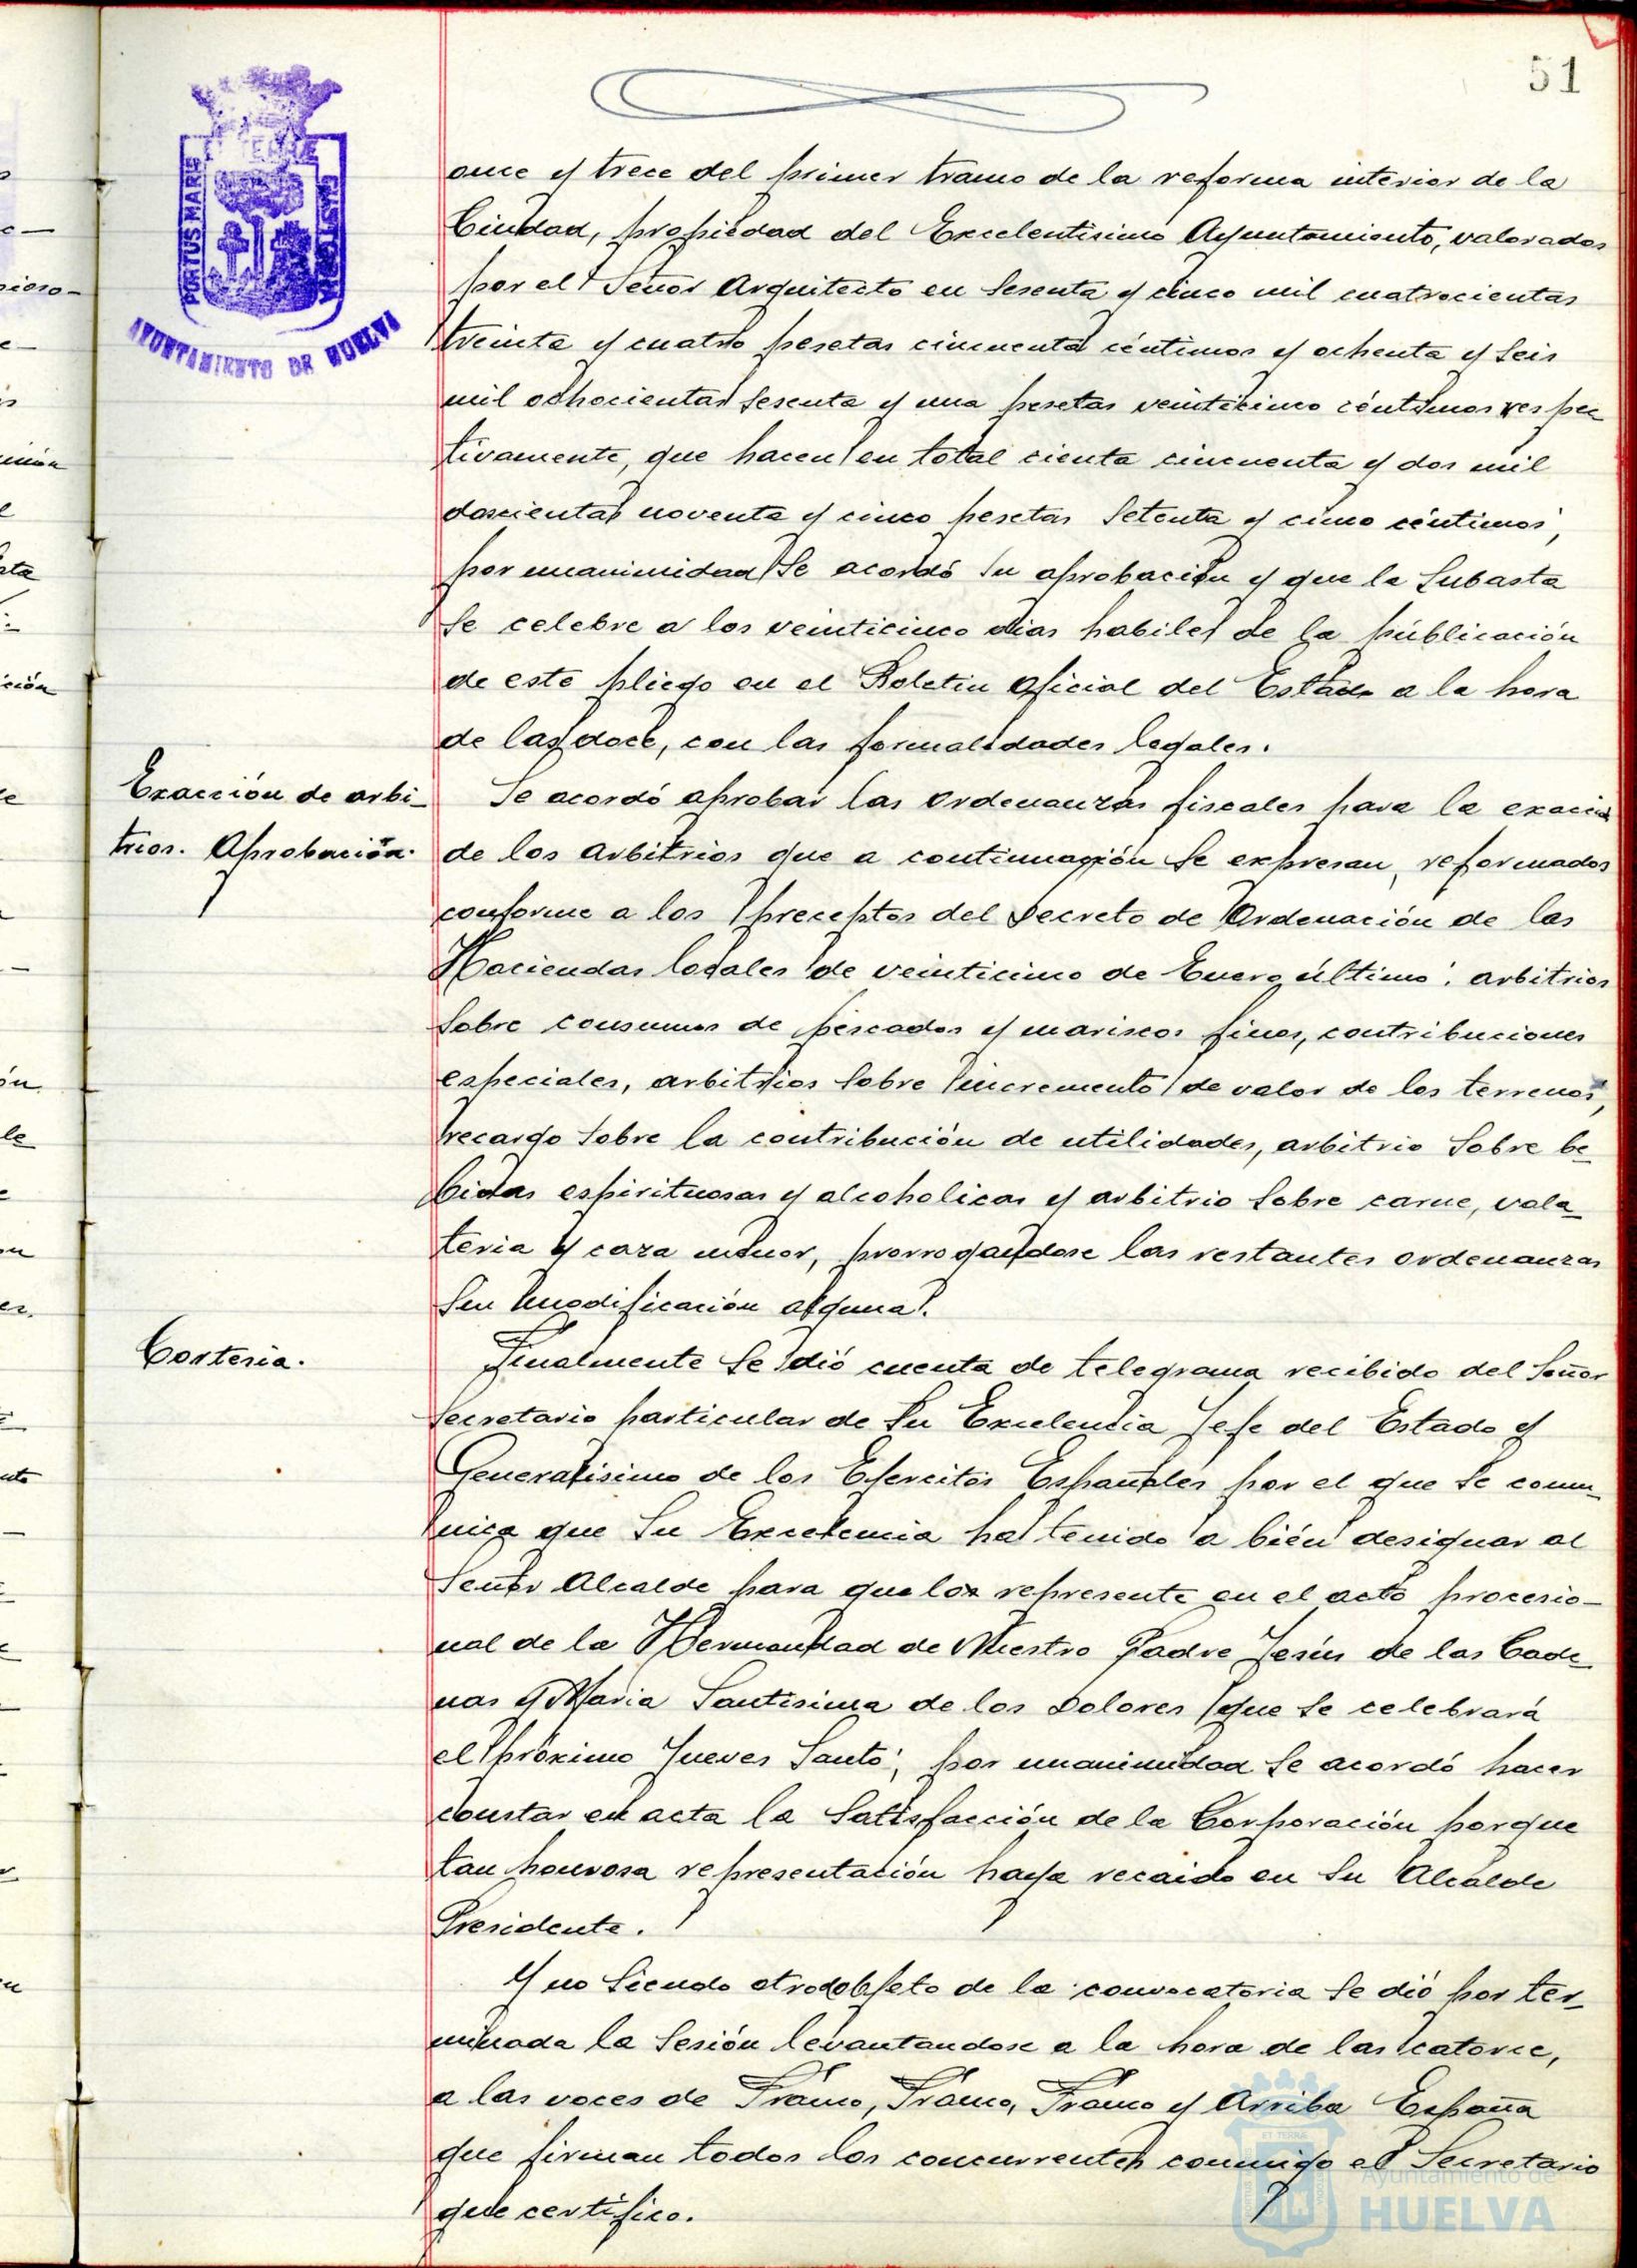 51
PORTUS MARIS
ET TERRÆ
CUSTODIA
AYUNTAMIENTO DE HUELVA
once y trece del primer tramo de la reforma interior de la
Ciudad, propiedad del Excelentisimo Ayuntamiento, valorados
por el Señor Arquitecto en sesenta y cinco mil cuatrocientas
treinta y cuatro pesetas cincuenta céntimos y ochenta y seis
mil ochocientas sesenta y una pesetas veinticinco céntimos respec
tivamente, que hacen en total cienta cincuenta y dos mil
doscientas noventa y cinco pesetas setenta y cinco céntimos,
por unanimidad se acordó su aprobación y que la subasta
se celebre a los veinticinco dias habiles de la públicación
de este pliego en el Boletin oficial del Estado a la hora
de las doce, con las formalidades legales.
Exacción de arbi-
trios. Aprobación.
Se acordó aprobar las ordenanzas fiscales para la exacción
de los arbitrios que a continuación se expresan, reformados
conforme a los preceptos del Decreto de Ordenación de las
Haciendas locales de veinticinco de Enero último: arbitrios
sobre consumos de pescados y mariscos finos, contribuciones
especiales, arbitrios sobre incremento de valor de los terrenos,
recargo sobre la contribución de utilidades, arbitrio sobre be-
bidas espirituosas y alcoholicas y arbitrio sobre carne, vola-
teria y caza menor, prorrogandose las restantes ordenanzas
sin modificación alguna.
Cortesia.
Finalmente se dió cuenta de telegrama recibido del Señor
Secretario particular de Su Excelencia Jefe del Estado y
Generalisimo de los Ejercitos Españoles por el que se comu-
nica que Su Excelencia ha tenido a bién designar al
Señor Alcalde para que lo represente en el acto procesio-
nal de la Hermandad de Nuestro Padre Jesús de las Cade-
nas y Maria Santisima de los Dolores que se celebrará
el próximo Jueves Santo; por unanimidad se acordó hacer
constar en acta la satisfacción de la Corporación porque
tan honrosa representación haya recaido en su Alcalde
Presidente.
Y no siendo otro objeto de la convocatoria se dió por ter-
minada la sesión levantandose a la hora de las catorce,
a las voces de Franco, Franco, Franco y Arriba España
que firman todos los concurrentes conmigo el Secretario
que certifico.
Ayuntamiento de
HUELVA